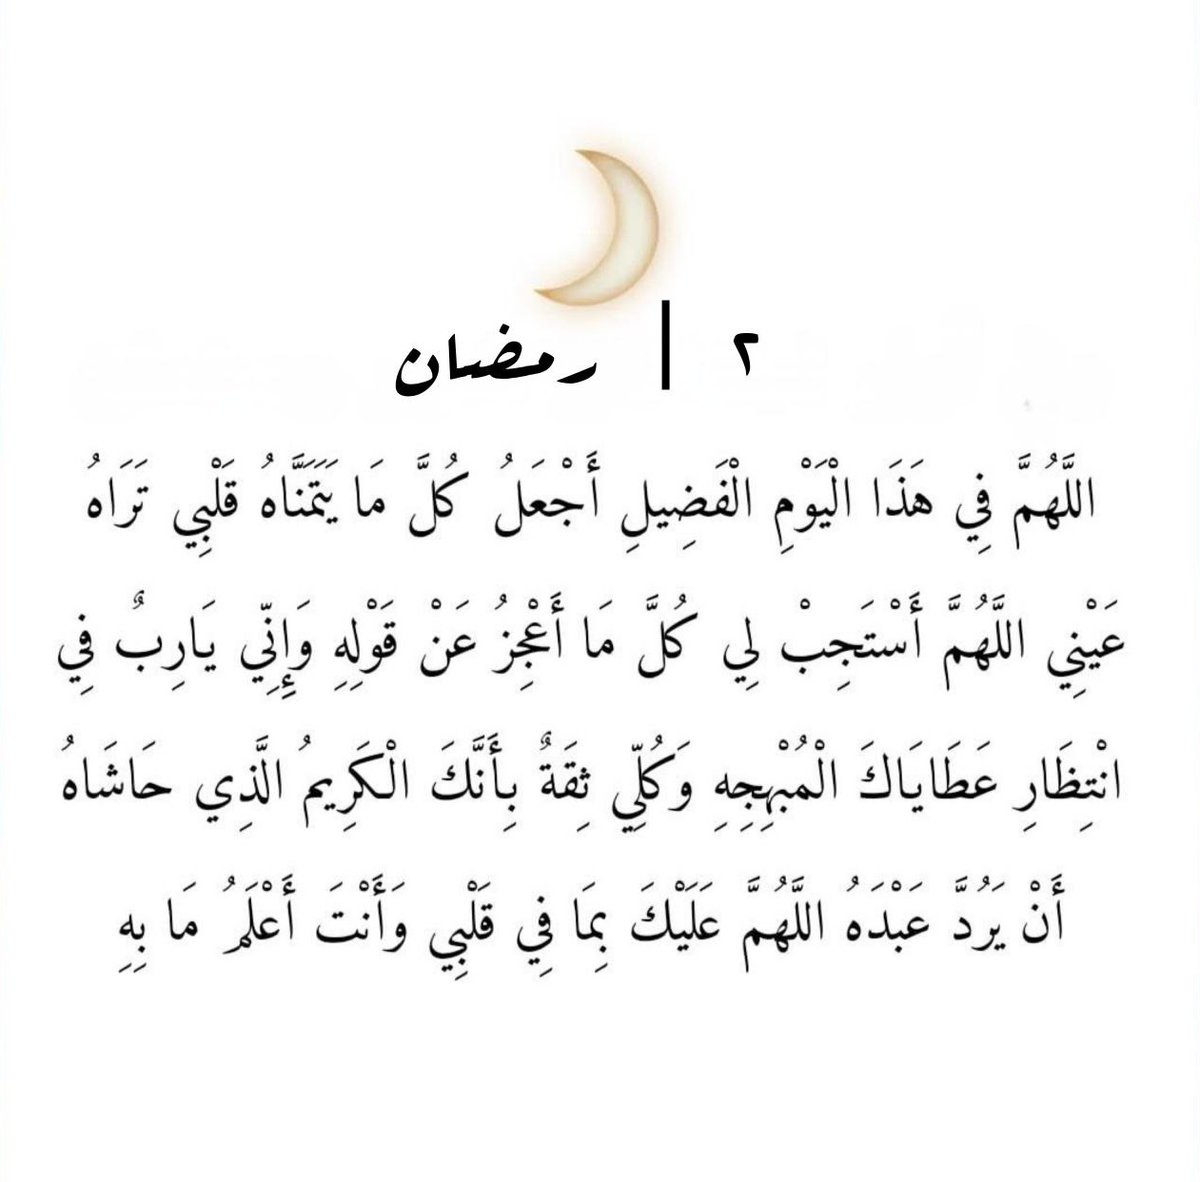 ٢ | رمضان
اللَّهُمَّ فِي هَذَا الْيَوْمِ الْفَضِيلِ أَجْعَلُ كُلَّ مَا يَتَمَنَّاهُ قَلْبِي تَرَاهُ
عَيْنِي اللَّهُمَّ أَسْتَجِبْ لِي كُلَّ مَا أَعْجِزُ عَنْ قَوْلِهِ وَإِنِّي يَارِبٌ فِي
انْتِظَارِ عَطَايَاكَ الْمُبْهِجِهِ وَكُلِّي ثِقَةٌ بِأَنَّكَ الْكَرِيمُ الَّذِي حَاشَاهُ
أَنْ يَرُدَّ عَبْدَهُ اللَّهُمَّ عَلَيْكَ بِمَا فِي قَلْبِي وَأَنْتَ أَعْلَمُ مَا بِهِ